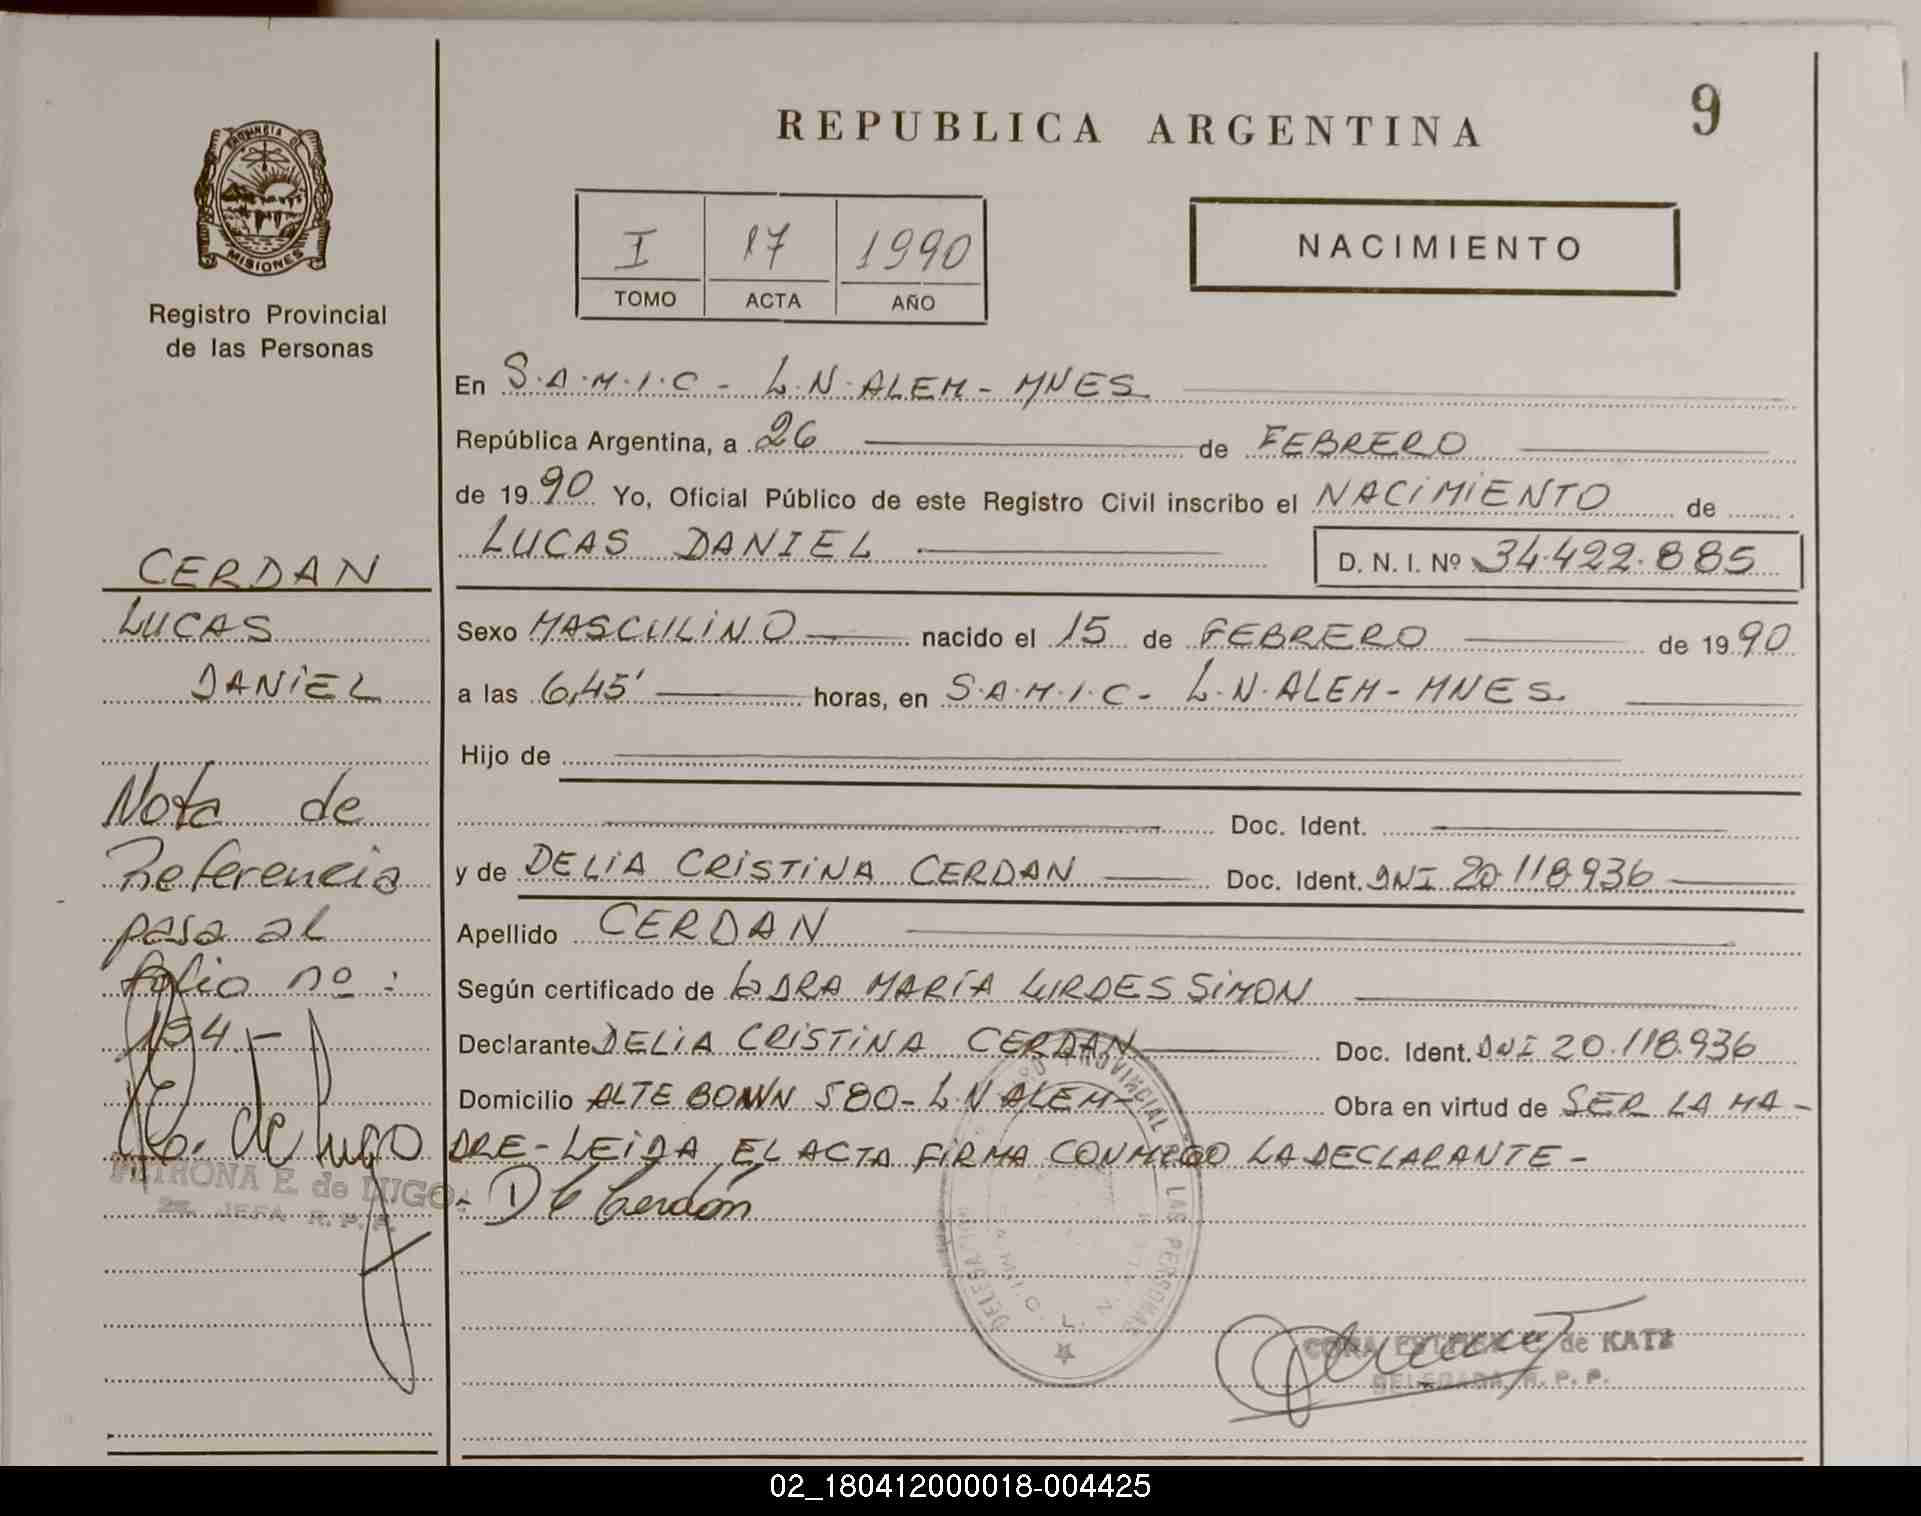 REPUBLICA ARGENTINA
9
PROVINCIA
MISIONES
Registro Provincial
de las Personas
I 17 1990
TOMO ACTA AÑO
NACIMIENTO
En S.A.M.I.C - L.N.ALEM - MNES
República Argentina, a 26 de FEBRERO
de 1990 Yo, Oficial Público de este Registro Civil inscribo el NACIMIENTO de
LUCAS DANIEL D. N. I. Nº 34.422.885
CERDAN
LUCAS
DANIEL
Sexo MASCULINO nacido el 15 de FEBRERO de 1990
a las 6,45' horas, en S.A.M.I.C - L.N.ALEM - MNES.
Hijo de
Doc. Ident.
y de DELIA CRISTINA CERDAN Doc. Ident. DNI 20.118.936
Apellido CERDAN
Según certificado de LA DRA MARÍA LURDES SIMON
Declarante DELIA CRISTINA CERDAN Doc. Ident. DNI 20.118.936
Domicilio ALTE BOWN 580 - L N ALEM - Obra en virtud de SER LA MA -
DRE - LEIDA EL ACTA FIRMA CONMIGO LA DECLARANTE -
D C Cerdán
Nota de
Referencia
pasa al
folio nº :
194.-
de Lugo
PETRONA E. de LUGO
JEFA R. P. P.
PROVINCIAL LAS PERSONAS
de KATZ
DELEGADA R. P. P.
02_180412000018-004425